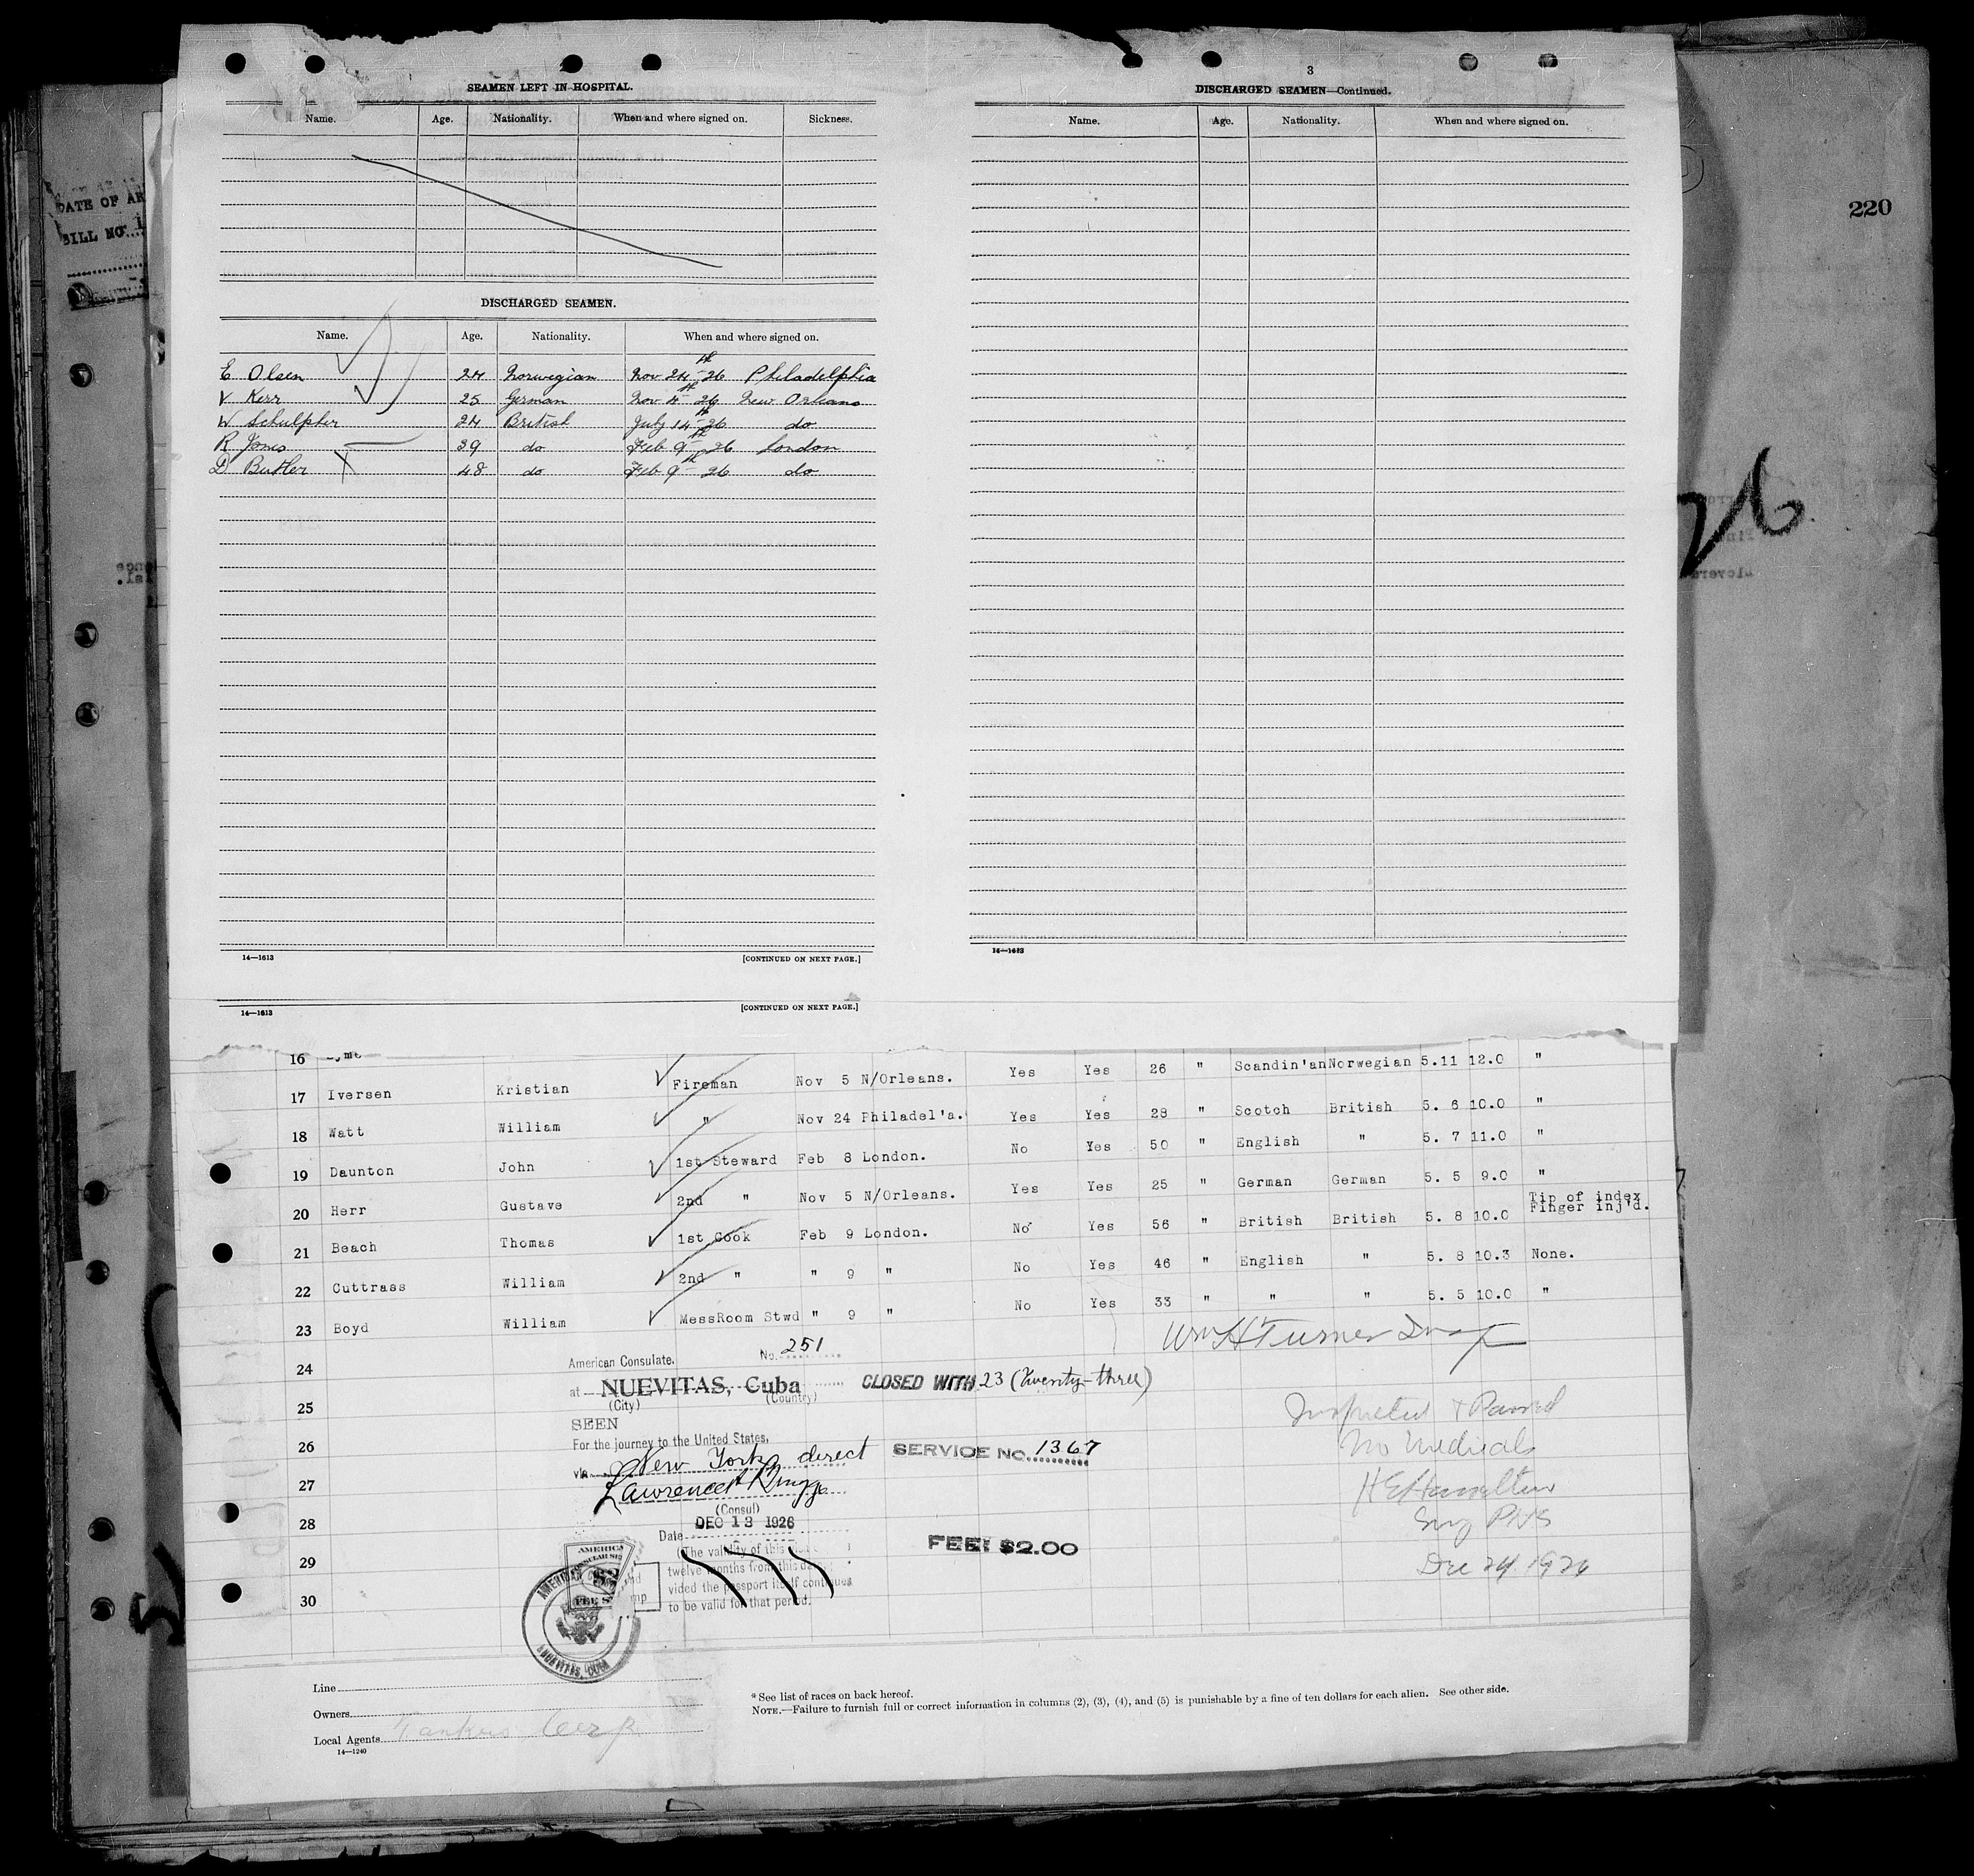 DATE OF AR
BILL NO. 1
220
26
SEAMEN LEFT IN HOSPITAL.
Name. Age. Nationality. When and where signed on. Sickness.
DISCHARGED SEAMEN.
Name. Age. Nationality. When and where signed on.
E Olsen 24 Norwegian Nov 24th 26 Philadelphia
V Kerr 25 German Nov 4th 26 New Orleans
W Schulpher 24 British July 14th 26 do
R Jones 39 do Feb 9th 26 London
D Butler X 48 do Feb 9th 26 do
14—1613 [CONTINUED ON NEXT PAGE.]
3
DISCHARGED SEAMEN—Continued.
Name. Age. Nationality. When and where signed on.
14—1613
14—1613 [CONTINUED ON NEXT PAGE.]
16
17 Iversen Kristian Fireman Nov 5 N/Orleans. Yes Yes 26 " Scandin'an Norwegian 5.11 12.0 "
18 Watt William " Nov 24 Philadel'a. Yes Yes 28 " Scotch British 5. 6 10.0 "
19 Daunton John 1st Steward Feb 8 London. No Yes 50 " English " 5. 7 11.0 "
20 Herr Gustave 2nd " Nov 5 N/Orleans. Yes Yes 25 " German German 5. 5 9.0 "
21 Beach Thomas 1st Cook Feb 9 London. No Yes 56 " British British 5. 8 10.0 Tip of index Finger inj'd.
22 Cuttrass William 2nd " " 9 " No Yes 46 " English " 5. 8 10.3 None.
23 Boyd William MessRoom Stwd " 9 " No Yes 33 " " " 5. 5 10.0 "
24
25
26
27
28
29
30
Wm H Turner Insp
American Consulate. No. 251
at NUEVITAS, Cuba
(City) (Country)
CLOSED WITH 23 (Twenty-three)
SEEN
For the journey to the United States.
via New York direct
SERVICE NO. 1367
(Consul)
DEC 13 1926
Date
(The validity of this
twelve months from this da
vided the passport itself continues
to be valid for that period.
FEE: $2.00
AMERICA
CONSULAR SE
$2
FEE S
AMERICAN
NUEVITAS, CUBA
Inspected & Passed
No Medicals
H E Hamilton
Surg PHS
Dec 24 1926
Line
Owners
Local Agents Tankers Corp
14—1240
* See list of races on back hereof.
NOTE.—Failure to furnish full or correct information in columns (2), (3), (4), and (5) is punishable by a fine of ten dollars for each alien. See other side.